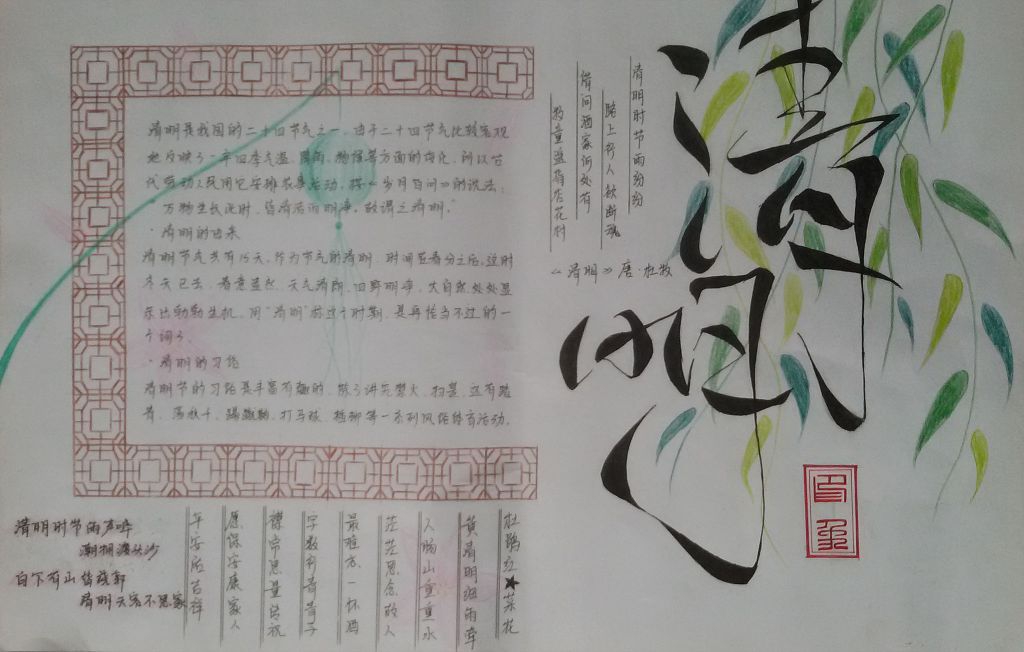 清明是我国的二十四节气之一。由于二十四节气比较客观
地反映了一年四季气温、降雨、物候等方面的变化，所以古
代劳动人民用它安排农事活动，按《岁月百问》的说法：
万物生长此时，皆清洁而明净。故谓之清明。”
·清明的由来
清明节气共有15天。作为节气的清明，时间在春分之后。这时
冬天已去，春意盎然，天气清朗，田野明净，大自然处处显
示出勃勃生机。用“清明”称这个时期，是再恰当不过的一
个词了。
·清明的习俗
清明节的习俗是丰富有趣的，除了讲究禁火、扫墓，还有踏
青、荡秋千、蹴鞠、打马球、插柳等一系列风俗体育活动。
清明时节雨纷纷
路上行人欲断魂
借问酒家何处有
牧童遥指杏花村
《清明》唐·杜牧
清明
杜鹃红★菜花
黄清明细雨牵
人肠山重重水
茫茫思念故人
最难忘一杯酒
字数行青青子
襟常思量总祝
愿保安康家人
年安居吉祥
清明时节雨声哗
潮拥渡头沙
白下有山皆绕郭
清明天客不思家